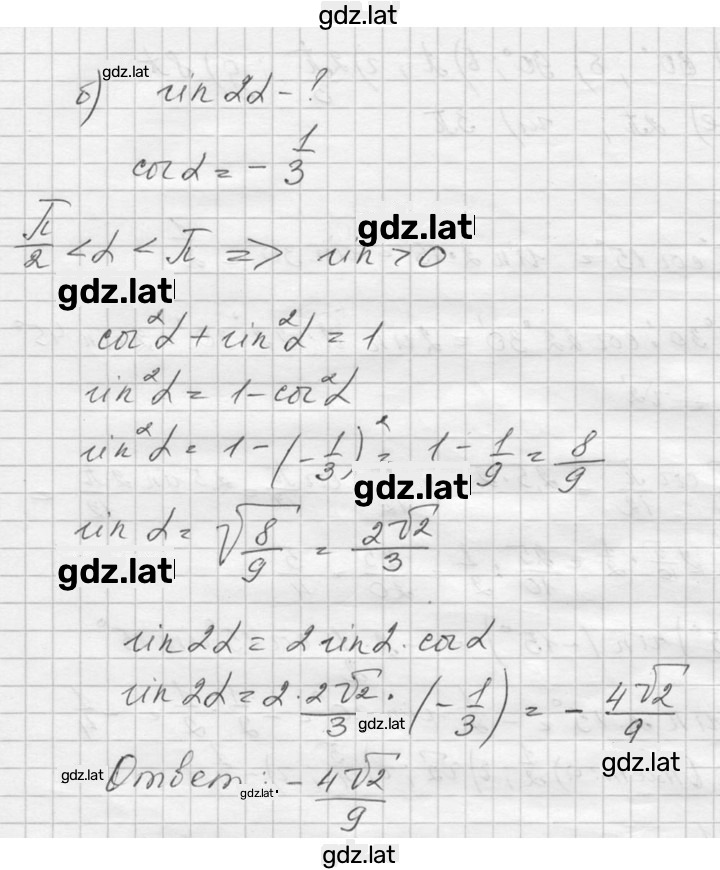 gdz.lat
gdz.lat
б) sin 2α - ?
cos α = - 1/3
gdz.lat
π/2 < α < π => sin > 0
gdz.lat
cos²α + sin²α = 1
sin²α = 1 - cos²α
sin²α = 1 - (-1/3)² = 1 - 1/9 = 8/9
gdz.lat
sin α = √(8/9) = 2√2/3
gdz.lat
sin 2α = 2 sin α · cos α
sin 2α = 2 · 2√2/3 · (-1/3) = - 4√2/9
gdz.lat
gdz.lat
gdz.lat
Ответ: - 4√2/9
gdz.lat
gdz.lat